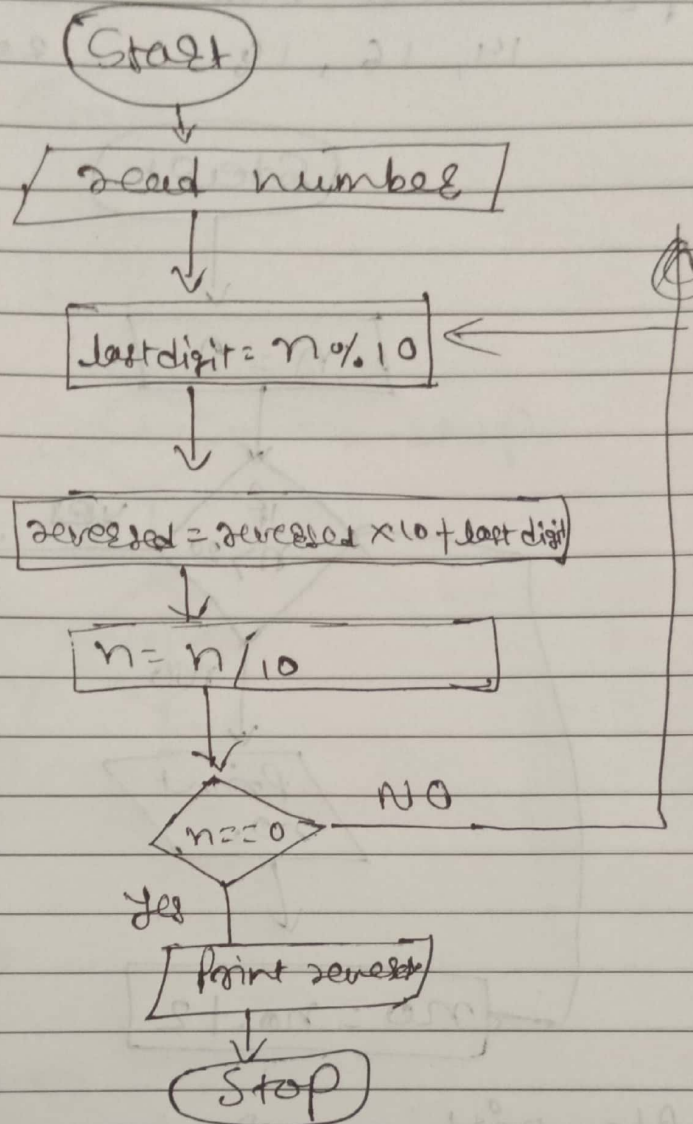 Start
read number
lastdigit = n % 10
reversed = reversed × 10 + last digit
n = n / 10
n == 0
NO
Yes
Print
Stop